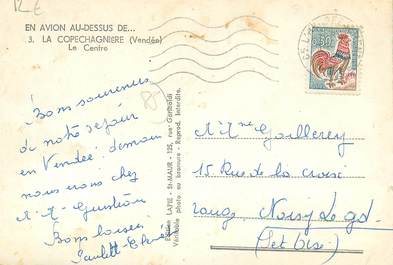 EN AVION AU-DESSUS DE...
3. LA COPECHAGNIERE (Vendée)
Le Centre
85
Bons souvenirs
de notre séjour
en Vendée. demain
nous irons chez
Bons baisers
Edition LAPIE - St-MAUR - 125, rue Garibaldi
Véritable photo au bromure - Reprod. Interdite.
15 Rue de la croix
rouge, Noisy le gd
(Set Oise)